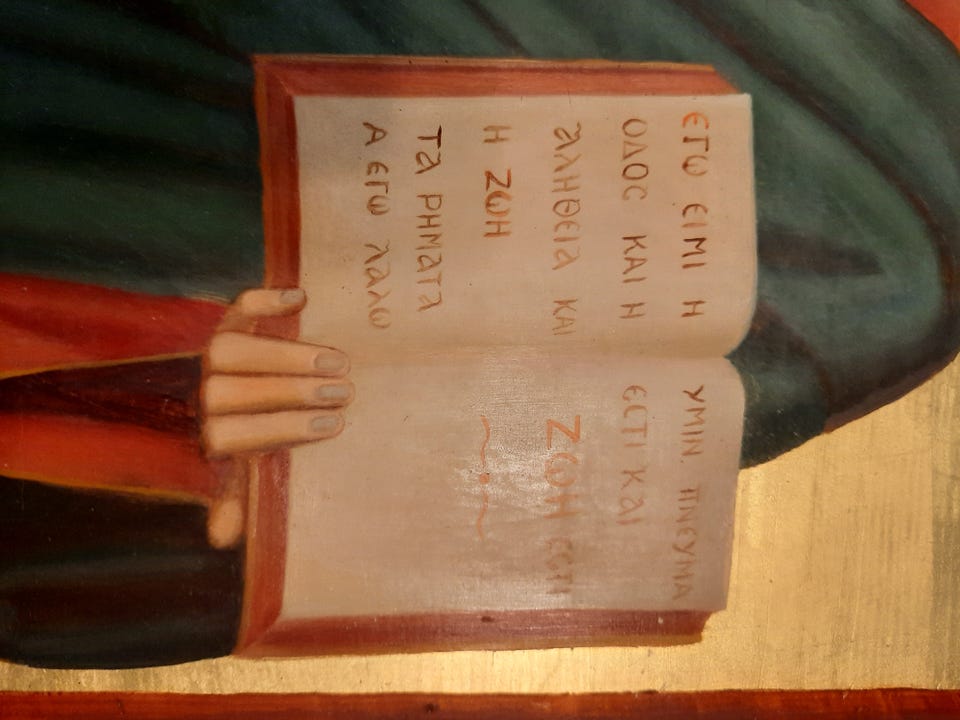 ΕΓΩ ΕΙΜΙ Η
ΟΔΟC ΚΑΙ Η
ΑΛΗΘΕΙΑ ΚΑΙ
Η ΖΩΗ
ΤΑ ΡΗΜΑΤΑ
Α ΕΓΩ ΛΑΛΩ
ΥΜΙΝ. ΠΝΕΥΜΑ
ΕCΤΙ ΚΑΙ
ΖΩΗ ΕCΤΙ